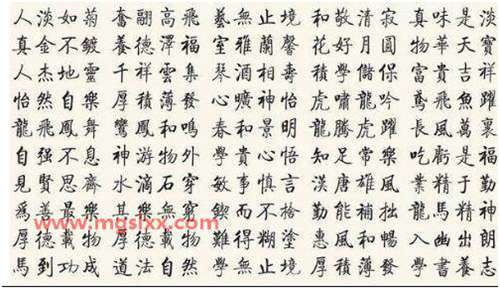 人淡如菊 奮翮高飛 藝無止境 和敬清寂 真味是淡
真金不鍍 養德澤福 室雅蘭馨 花好月圓 物華天寶
人杰地靈 千祥雲集 琴酒相壽 學儲保 富貴吉祥
怡然自樂 厚積薄發 心曠神怡 虎嘯龍吟 鳶飛魚躍
龍飛鳳舞 鸞鳳和鳴 春和景明 龍騰虎躍 長風萬裏
自强不息 神游物外 學貴心悟 知足常樂 吃虧是福
見賢思齊 水滴石穿 敏事慎言 漢唐雄風 業精于勤
為善最樂 其樂無窮 鍥而不捨 勤能補拙 龍馬精神
www.mgslxx.com
厚德載物 厚德載物 難得糊塗 惠風和暢 入幽出朗
馬到功成 道法自然 學無止境 厚積薄發 學書養志